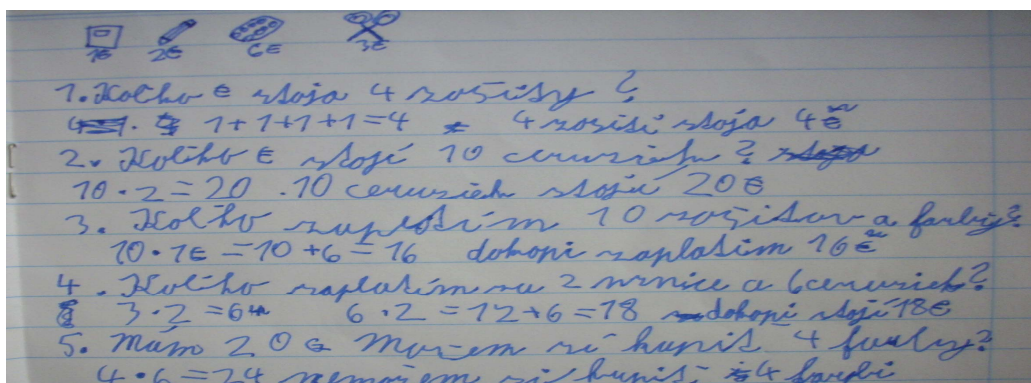 1€ 2€ 6€ 3€
1. Kolko € stoja 4 zošity?
1+1+1+1=4 4 zošiti stoja 4€
2. Koliko € stojí 10 ceruziek?
10·2=20 .10 ceruziek stojú 20€
3. Kolko zaplatím 10 zošitov a farby?
10·1€=10+6=16 dokopi zaplatim 16€
4. Koliko zaplatím za 2 nžnice a 6 ceruziek?
3·2=6 6·2=12+6=18 dokopi stojí 18€
5. Mám 20€ Mozem si kupit 4 farby?
4·6=24 nemožem si kupit 4 farbi